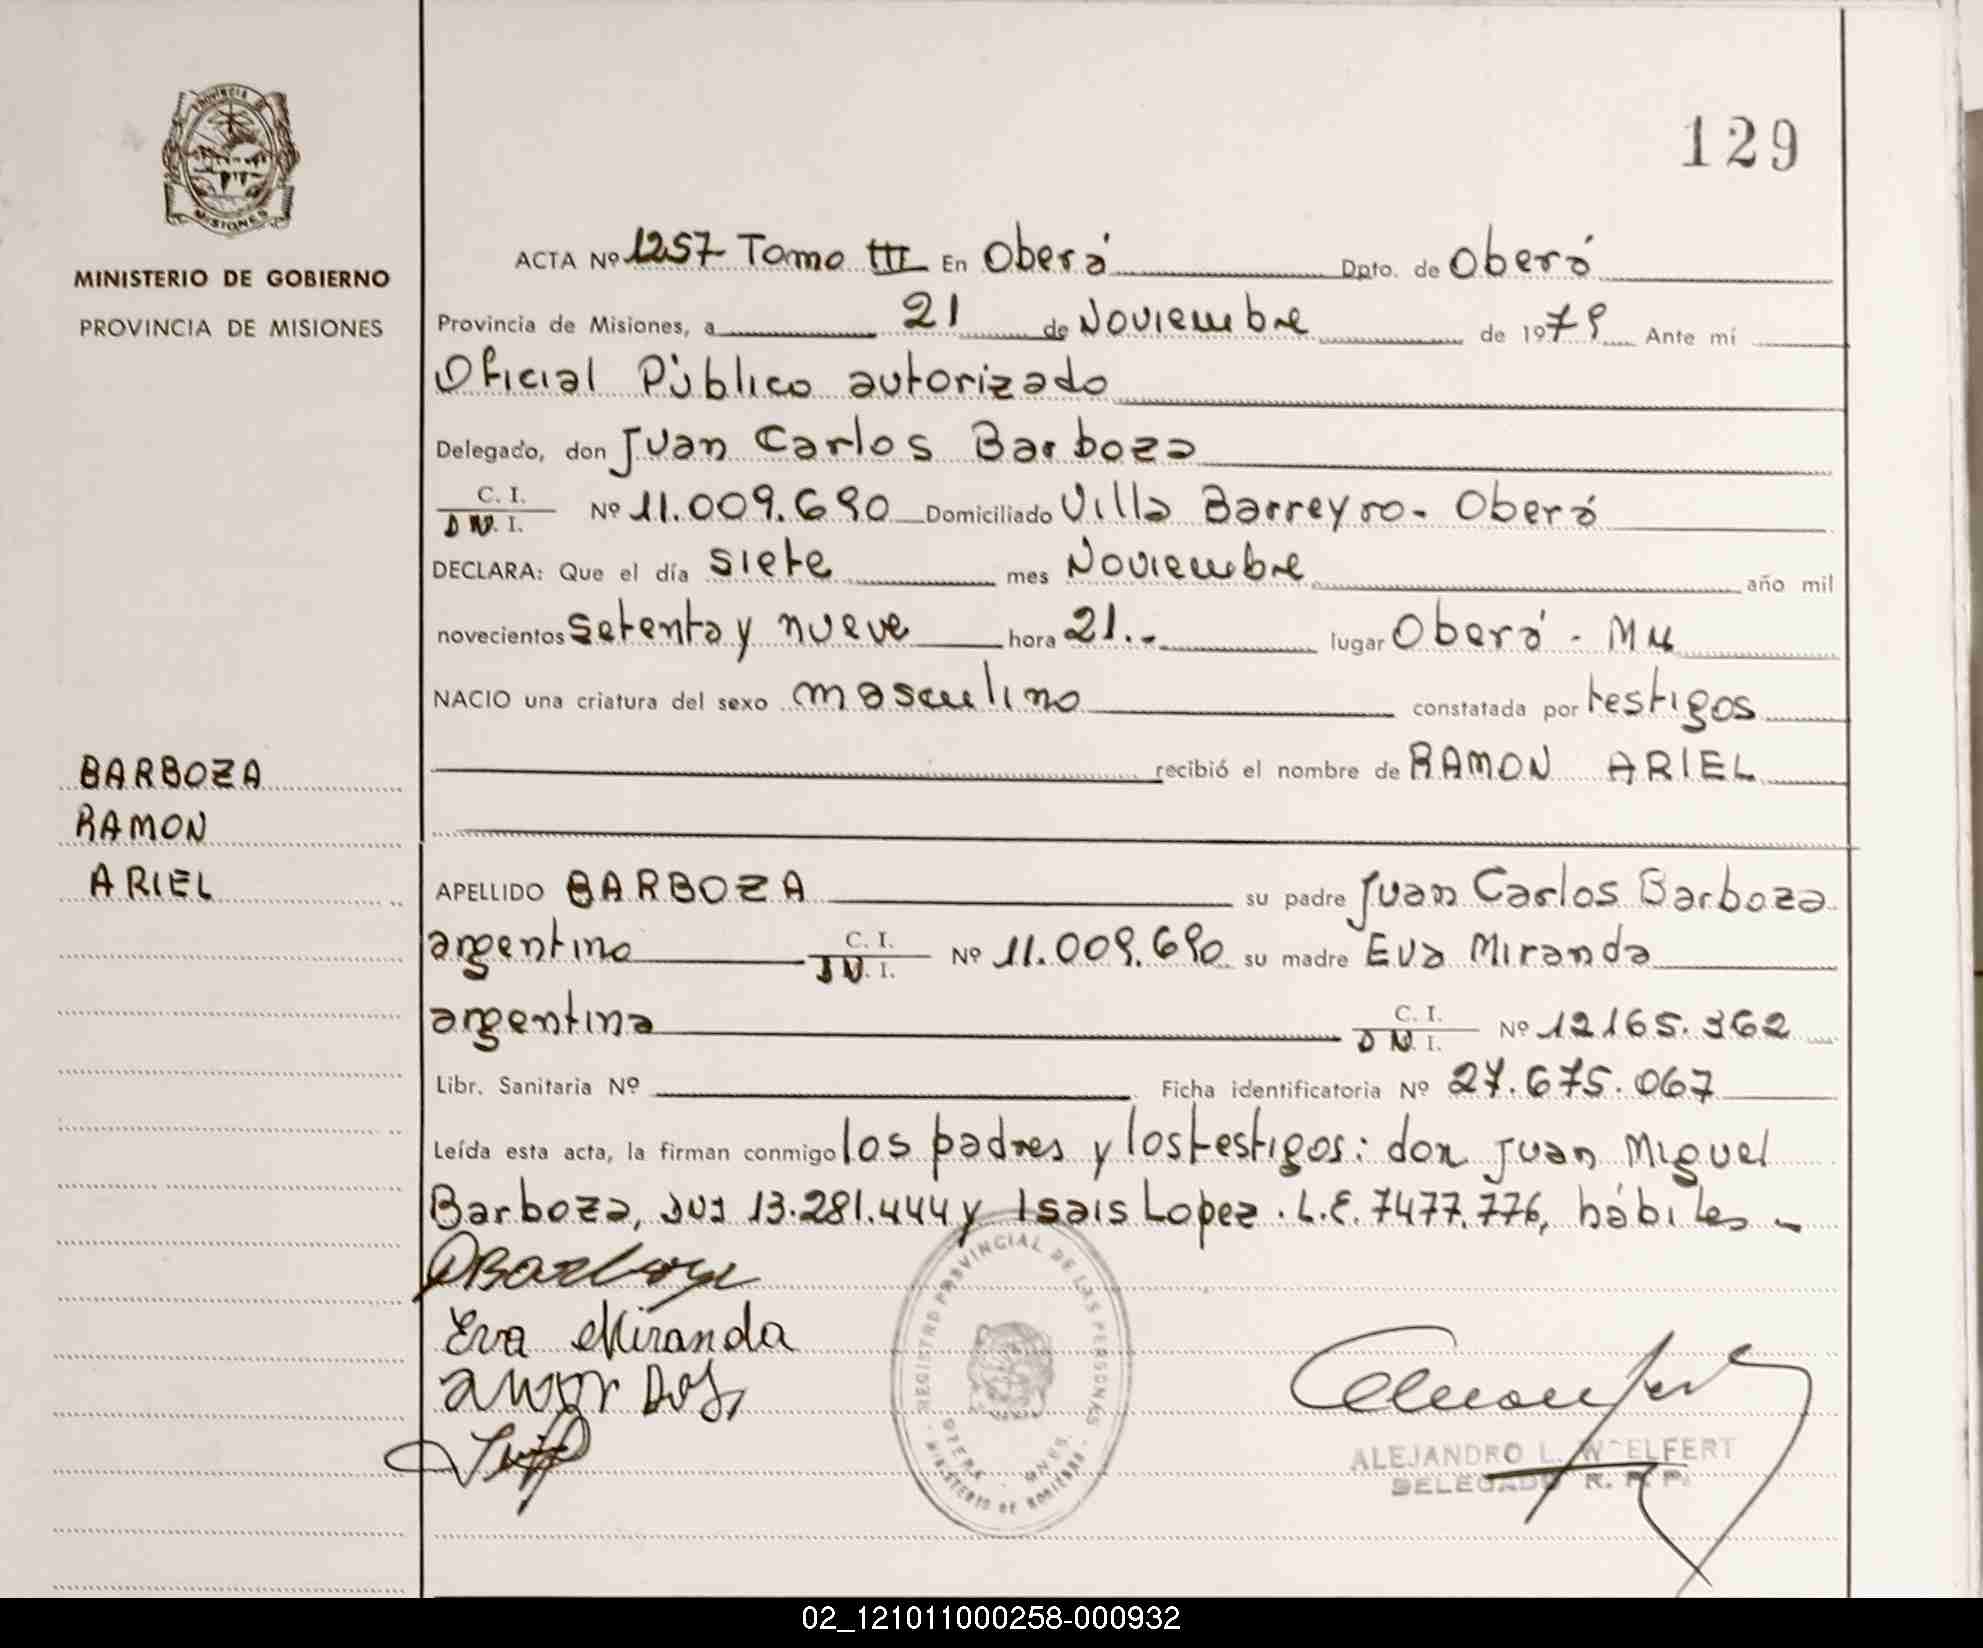 PROVINCIA DE
MISIONES
MINISTERIO DE GOBIERNO
PROVINCIA DE MISIONES
129
ACTA Nº 1257 Tomo III En Oberá Dpto. de Oberá
Provincia de Misiones, a 21 de Noviembre de 1979 Ante mí
Oficial Público autorizado
Delegado, don Juan Carlos Barboza
C. I.
D N. I. Nº 11.009.690 Domiciliado Villa Barreyro - Oberá
DECLARA: Que el día siete mes Noviembre año mil
novecientos setenta y nueve hora 21.- lugar Oberá - Mn
NACIO una criatura del sexo masculino constatada por testigos
recibió el nombre de RAMON ARIEL
BARBOZA
RAMON
ARIEL
APELLIDO BARBOZA su padre Juan Carlos Barboza
argentino C. I.
D N. I. Nº 11.009.690 su madre Eva Miranda
argentina C. I.
D N. I. Nº 12165.362
Libr. Sanitaria Nº Ficha identificatoria Nº 27.675.067
Leída esta acta, la firman conmigo los padres y los testigos: don Juan Miguel
Barboza, DNI 13.281.444 y Isais Lopez. L.E. 7477.776, hábiles -
Eva Miranda
REGISTRO PROVINCIAL DE LAS PERSONAS
MINISTERIO DE GOBIERNO
ALEJANDRO L. WOELFERT
DELEGADO R. P. P.
02_121011000258-000932